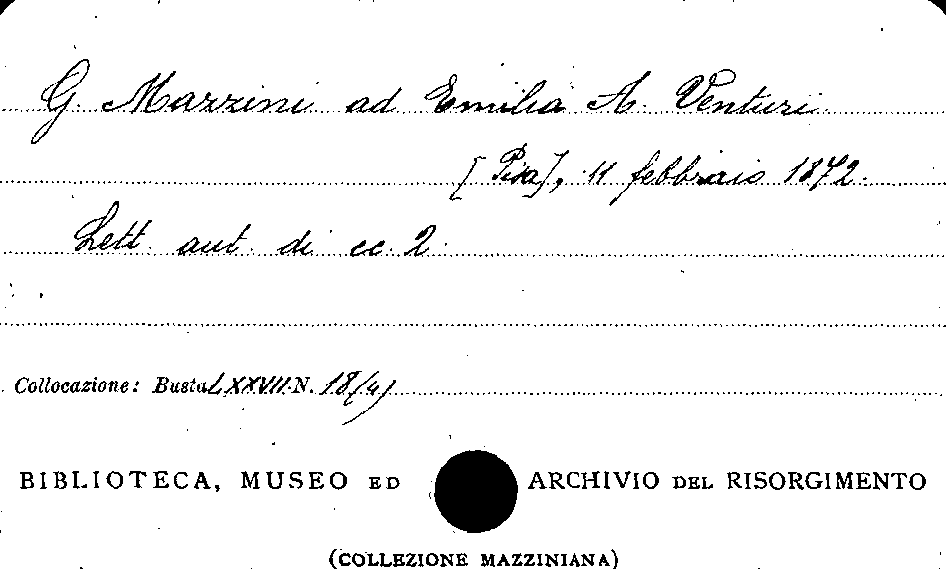 G. Mazzini ad Emilia A. Venturi
[Pisa], 11 febbraio 1872.
Lett. aut. di cc. 2.
Collocazione: Busta LXXVII N. 18(4)
BIBLIOTECA, MUSEO ED ARCHIVIO DEL RISORGIMENTO
(COLLEZIONE MAZZINIANA)